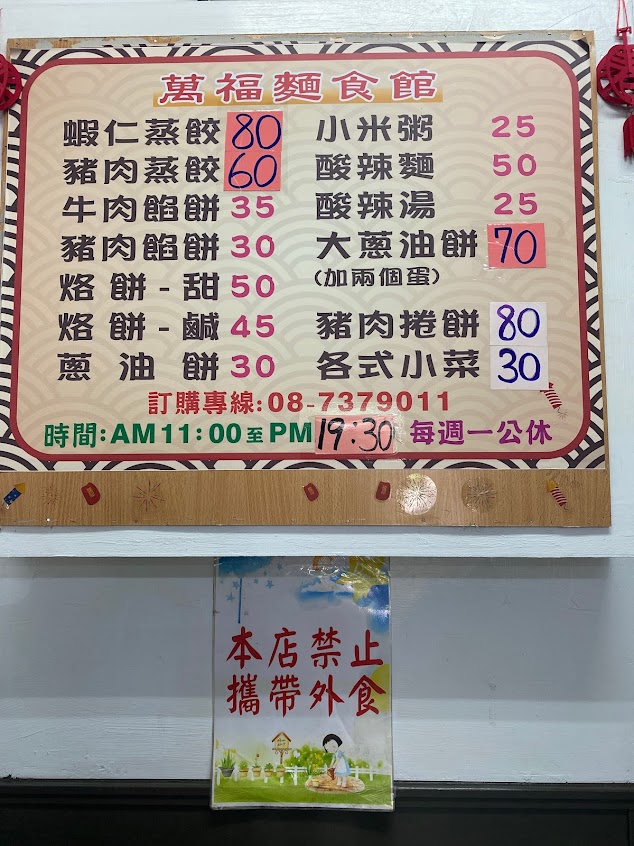 萬福麵食館
蝦仁蒸餃 80
豬肉蒸餃 60
牛肉餡餅 35
豬肉餡餅 30
烙餅-甜 50
烙餅-鹹 45
蔥油餅 30
小米粥 25
酸辣麵 50
酸辣湯 25
大蔥油餅 70
(加兩個蛋)
豬肉捲餅 80
各式小菜 30
訂購專線:08-7379011
時間:AM11:00至PM19:30 每週一公休
本店禁止
攜帶外食